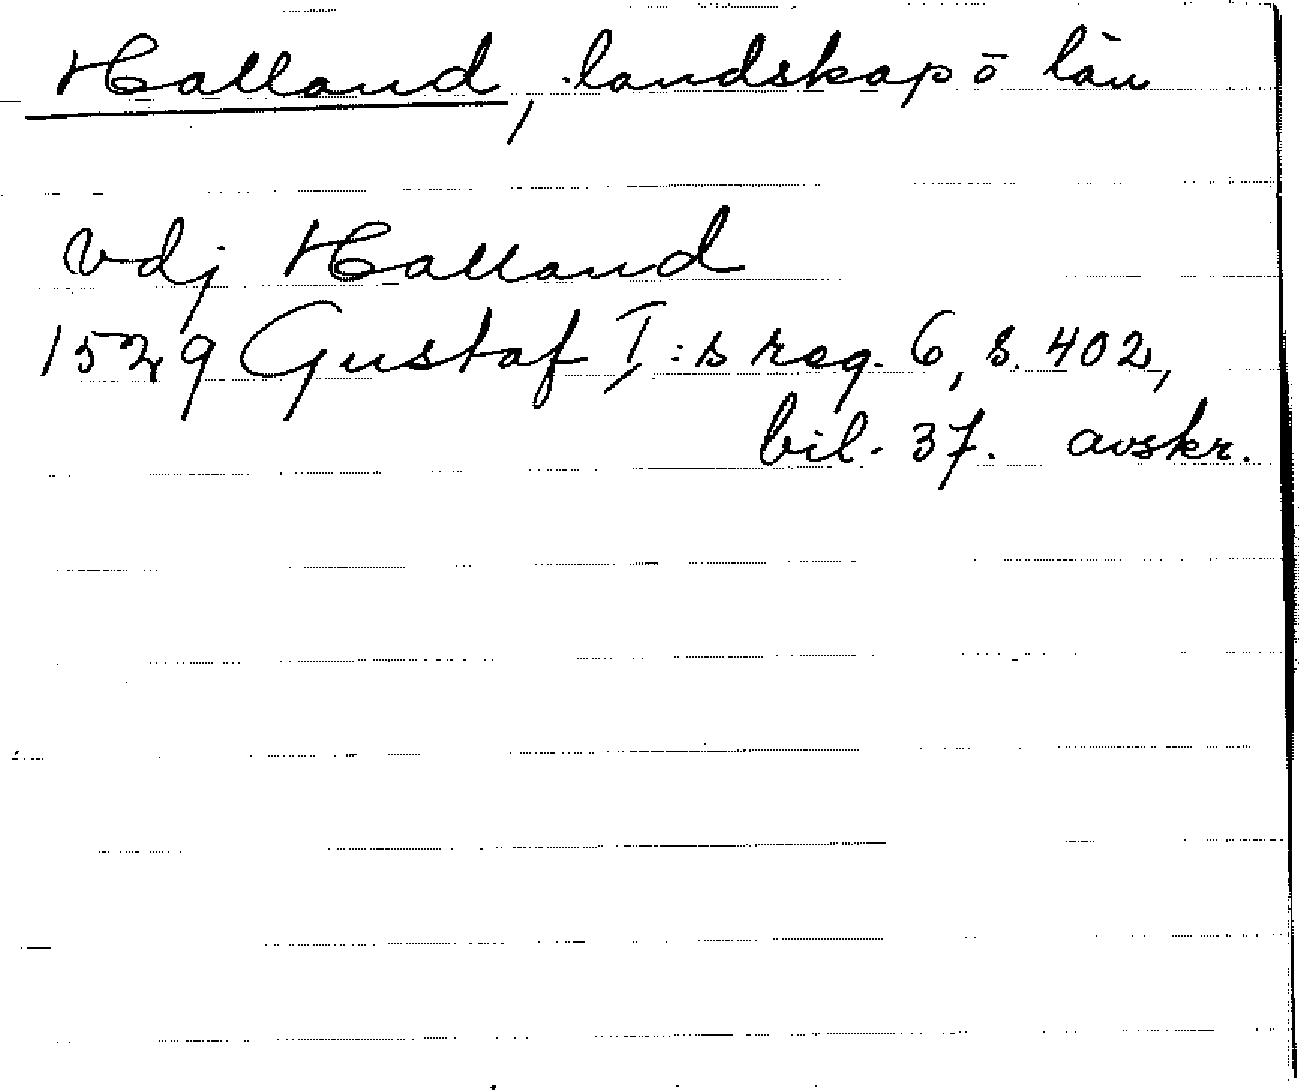 Halland, landskap ō län
vdj Halland
1529 Gustaf I:s reg. 6, s. 402,
bil. 37. avskr.